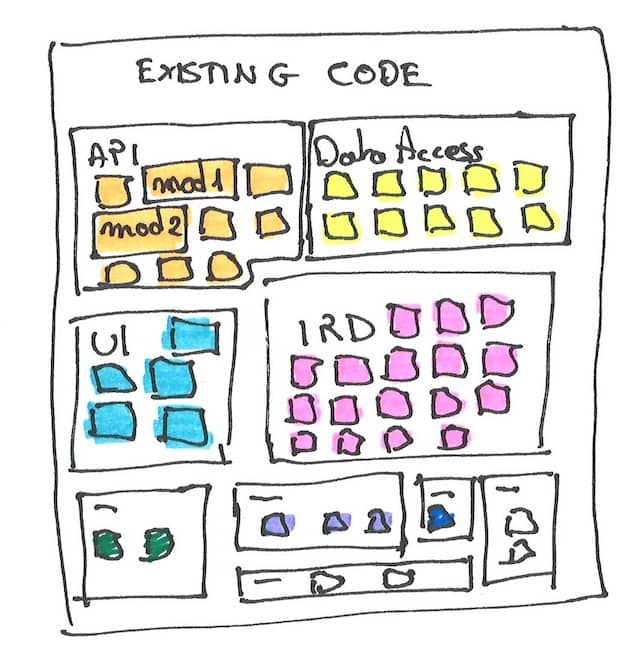 EXISTING CODE
API
mod1
mod2
Data Access
UI
IRD